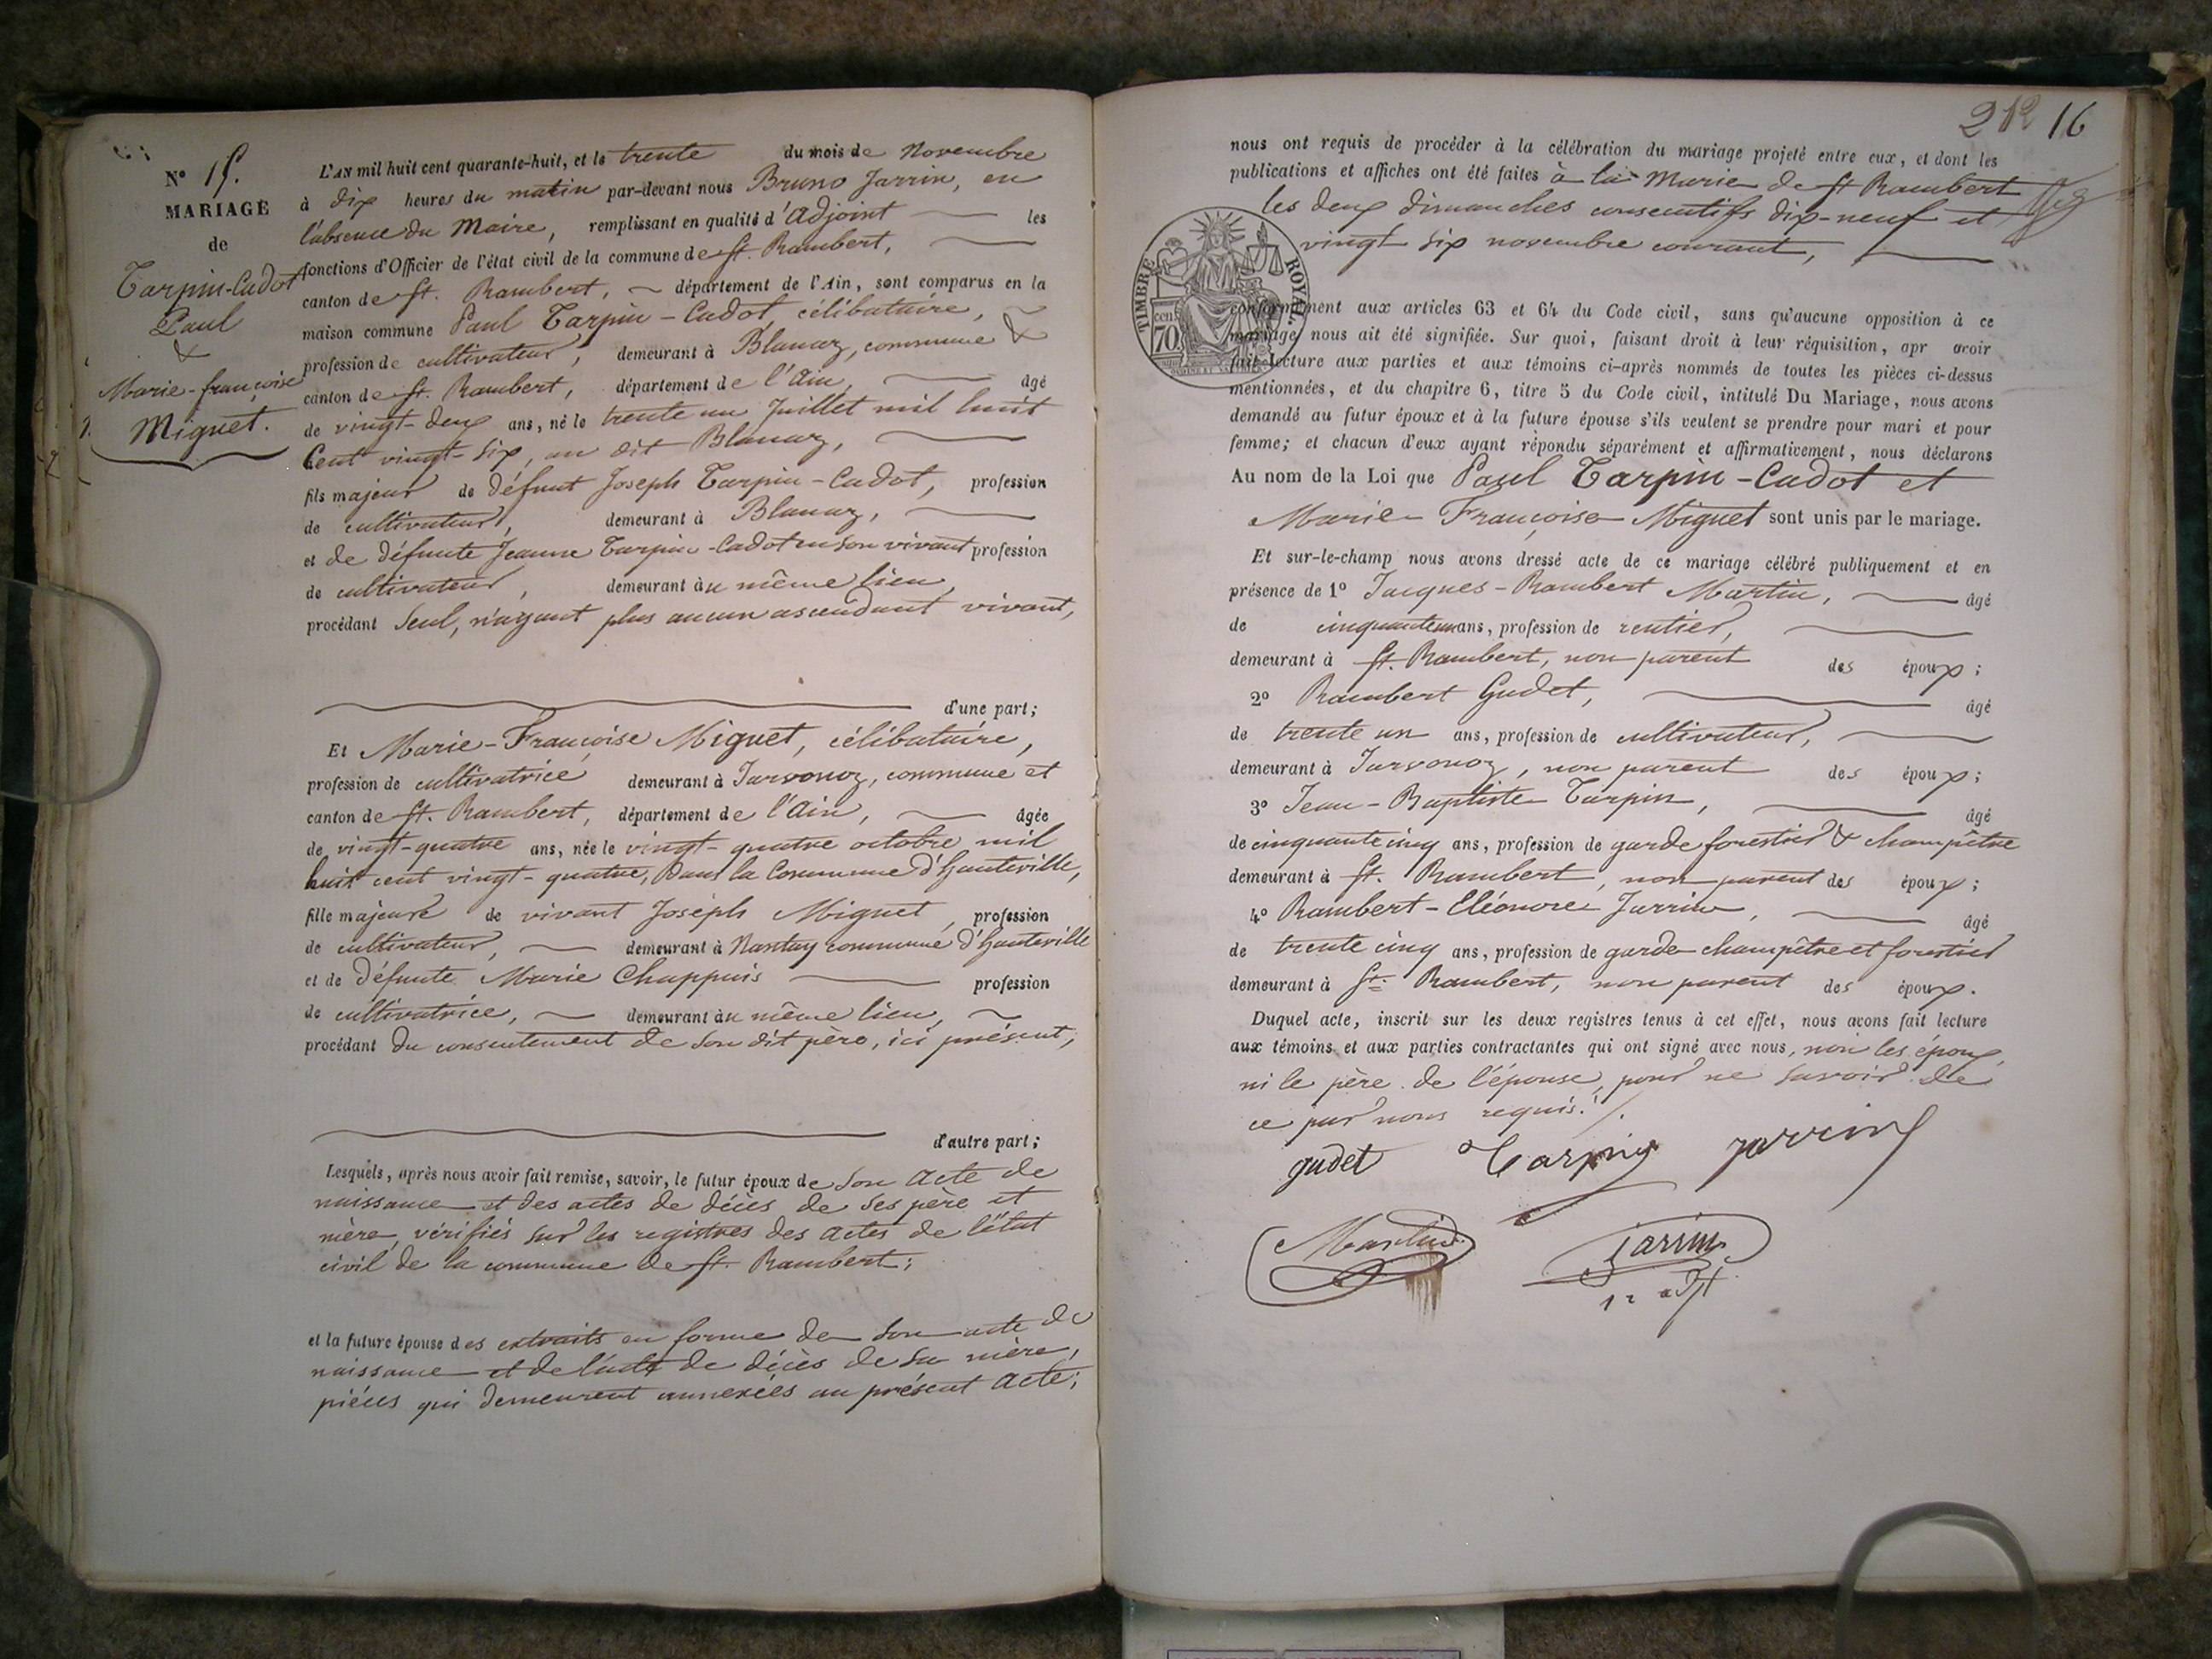 N° 15.
MARIAGE
de
Tarpin-Cadot
Paul
&
Marie-françoise
Miguet.
L'AN mil huit cent quarante-huit, et le trente du mois de Novembre
à dix heures du matin par-devant nous Bruno Jarrin, en
l'absence du Maire, remplissant en qualité d'Adjoint les
fonctions d'Officier de l'état civil de la commune de St. Rambert,
canton de St. Rambert, département de l'Ain, sont comparus en la
maison commune Paul Tarpin-Cadot, célibataire,
profession de cultivateur, demeurant à Blanaz, commune &
canton de St. Rambert, département de l'Ain, âgé
de vingt-deux ans, né le trente un Juillet mil huit
Cent vingt-six, au dit Blanaz,
fils majeur de défunt Joseph Tarpin-Cadot, profession
de cultivateur, demeurant à Blanaz,
et de défunte Jeanne Tarpin-Cadot en son vivant profession
de cultivateur, demeurant au même lieu,
procédant Seul, n'ayant plus aucun ascendant vivant,
d'une part;
Et Marie-Françoise Miguet, célibataire,
profession de cultivatrice demeurant à Javornoz, commune et
canton de St. Rambert, département de l'Ain, âgée
de vingt-quatre ans, née le vingt-quatre octobre mil
huit cent vingt-quatre, Dans la Commune d'Hauteville,
fille majeure de vivant Joseph Miguet, profession
de cultivateur, demeurant à Nantuy commune d'Hauteville
et de défunte Marie Chappuis profession
de cultivatrice, demeurant au même lieu,
procédant du consentement de son dit père, ici présent;
d'autre part;
Lesquels, après nous avoir fait remise, savoir, le futur époux de son acte de
naissance et des actes de décès de ses père et
mère, vérifiés sur les registres des actes de l'état
civil de la commune de St. Rambert;
et la future épouse des extraits en forme de son acte de
naissance et de l'acte de décès de sa mère,
pièces qui demeurent annexées au présent acte;
212 16
nous ont requis de procéder à la célébration du mariage projeté entre eux, et dont les
publications et affiches ont été faites à la Marie de St Rambert
les deux dimanches consecutifs dix-neuf et
vingt six novembre courant,
TIMBRE ROYAL
cen. 70
conformément aux articles 63 et 64 du Code civil, sans qu'aucune opposition à ce
mariage nous ait été signifiée. Sur quoi, faisant droit à leur réquisition, apr avoir
fait lecture aux parties et aux témoins ci-après nommés de toutes les pièces ci-dessus
mentionnées, et du chapitre 6, titre 5 du Code civil, intitulé Du Mariage, nous avons
demandé au futur époux et à la future épouse s'ils veulent se prendre pour mari et pour
femme; et chacun d'eux ayant répondu séparément et affirmativement, nous déclarons
Au nom de la Loi que Paul Tarpin-Cadot et
Marie-Françoise Miguet sont unis par le mariage.
Et sur-le-champ nous avons dressé acte de ce mariage célébré publiquement et en
présence de 1° Jacques-Rambert Martin, âgé
de cinquante un ans, profession de rentier,
demeurant à St. Rambert, non parent des époux;
2° Rambert Gudet, âgé
de trente un ans, profession de cultivateur,
demeurant à Javornoz, non parent des époux;
3° Jean-Baptiste Tarpin, âgé
de cinquante cinq ans, profession de garde forestier & champêtre
demeurant à St. Rambert, non parent des époux;
4° Rambert-Eléonore Jarrin, âgé
de trente cinq ans, profession de garde champêtre et forestier
demeurant à St. Rambert, non parent des époux.
Duquel acte, inscrit sur les deux registres tenus à cet effet, nous avons fait lecture
aux témoins et aux parties contractantes qui ont signé avec nous, non les époux,
ni le père de l'épouse, pour ne savoir de
ce par nous requis./.
gudet Tarpin jarrin
Martin Jarrin